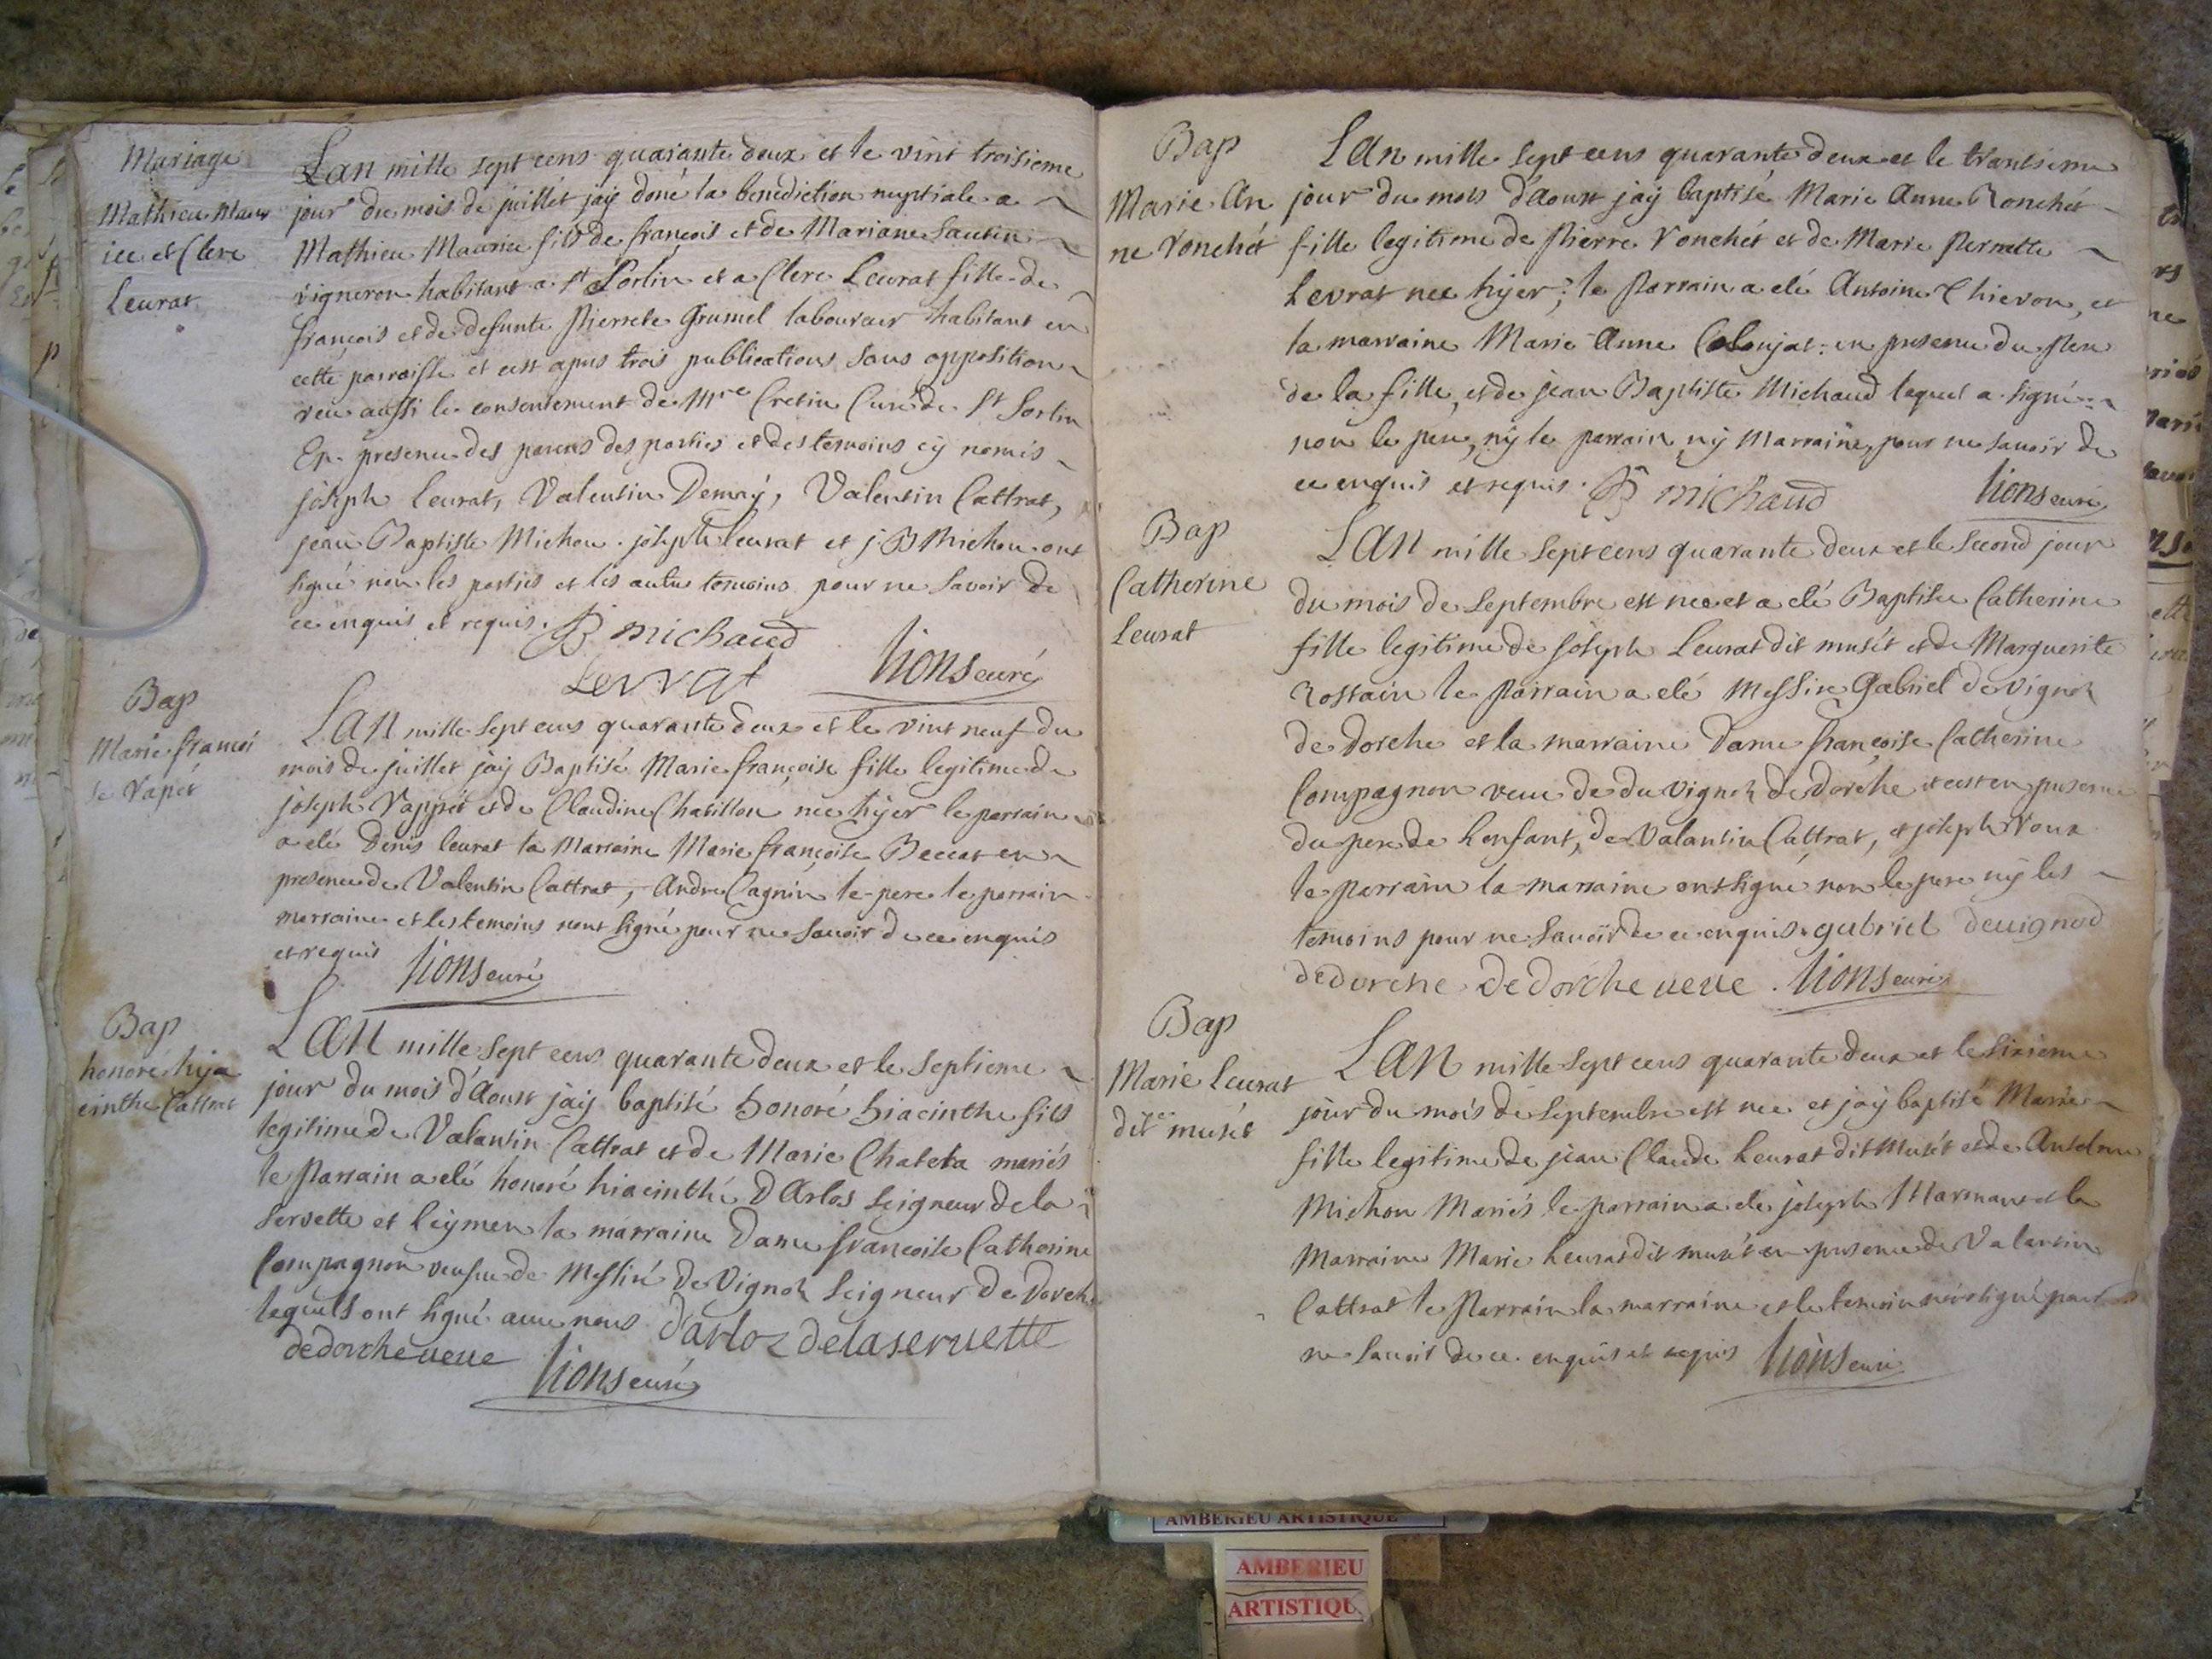 Mariage
Mathieu Maur
ice et Clere
Leurat
Lan mille sept cens quarante deux et le vint troisieme
jour du mois de juillet jaÿ doné la benediction nuptiale a
Mathieu Maurice fils de françois et de Mariane Sautin
vigneron habitant a st Sorlin et a Clere Leurat fille de
françois et de defunte Pierrete Grumel laboureur habitant en
cette parroisse et cest apres trois publications sans opposition
veu aussi le consentement de Mre Cretin Curé de St Sorlin
En presence des parens des parties et des temoins cÿ només
joseph leurat, Valentin Demaÿ, Valentin Cattrat,
jean Baptiste Michou. joseph leurat et j. B Michou ont
signé non les parties et les autre temoins pour ne savoir de
ce enquis et requis. JB michaud
Levrat Lions curé
Bap
Marie françoi
se Vapét
LAN mille sept cens quarante deux et le vint neuf du
mois de juillet jaÿ Baptisé Marie françoise fille legitime de
joseph Vappét et de Claudine Chatillon neé hÿer le parrain
a eté Denis leurat la Marraine Marie françoise Beccat en
presence de Valentin Cattrat, Andre Cagnin le pere le parrain
marraine et les temoins nont signé pour ne savoir de ce enquis
et requis Lions curé
Bap
honoré hÿa
cinthe Cattrat
LAN mille sept cens quarante deux et le septieme
jour du mois d'Aoust jaÿ baptisé honoré hiacinthe fils
legitime de Valantin Cattrat et de Marie Chateta mariés
le Parrain a eté honoré hiacinthé DArlos seigneur de la
Servette et leÿmen la marraine Dame françoise Catherine
Compagnon veufue de Messiré de Vignoh Seigneur de Dorche
lequels ont signé avec nous Darloz delaseruette
dedorche ueue Lions curé
Bap
Marie An
ne ronchét
LAn mille sept cens quarante deux et le trantieme
jour du mois d'aoust jaÿ baptisé Marie Anne Ronchét
fille legitime de Pierre ronchét et de Marie Pernette
Levrat neé hÿer; le Parrain a eté Antoine Thievon, et
la marraine Marie Anne Colonjat: en presence du Pere
de la fille, et de jean Baptiste Michaud lequel a signé
non le pere, nÿ le parrain, nÿ Marraine, pour ne savoir de
ce enquis et requis. JB michaud Lions curé
Bap
Catherine
Leurat
LAN mille sept cens quarante deux et le second jour
du mois de septembre est nee et a eté Baptisée Catherine
fille legitime de joseph Leurat dit musét et de Marguerite
rostain le Parrain a eté Messire Gabriel de Vignoh
de Dorche et la marraine Dame françoise Catherine
Compagnon veue de du Vignoh de Dorche et cest en presence
du pere de Lenfant, de Valantin Cattrat, et joseph roux
le parrain la marraine ont signé non le pere nÿ les
temoins pour ne savoir de ce enquis. gabriel deuignod
dedorche dedorche ueue. Lions curé
Bap
Marie Leurat
dit musét
LAN mille sept cens quarante deux et le sixieme
jour du mois de septembre est nee et jaÿ baptisé Marie
fille legitime de jean Claude Leurat dit Musét et de Anselme
Michou Mariés le parrain a eté joseph Marmant et la
Marraine Marie Leurat dit musét en presence de Valantin
Cattrat le Parrain la marraine et le temoin nont signé pour
ne savoir de ce enquis et requis Lions curé
AMBERIEU ARTISTIQUE
AMBERIEU
ARTISTIQU